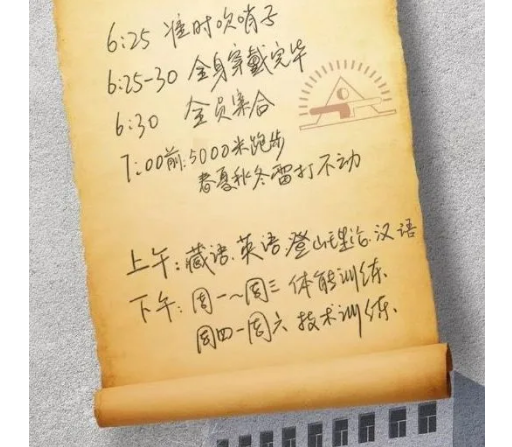 6:25 准时吹哨子
6:25-30 全身穿戴完毕
6:30 全员集合
7:00前:5000米跑步
春夏秋冬雷打不动
上午:藏语.英语.登山理论.汉语
下午:周一~周三 体能训练.
周四-周六 技术训练.